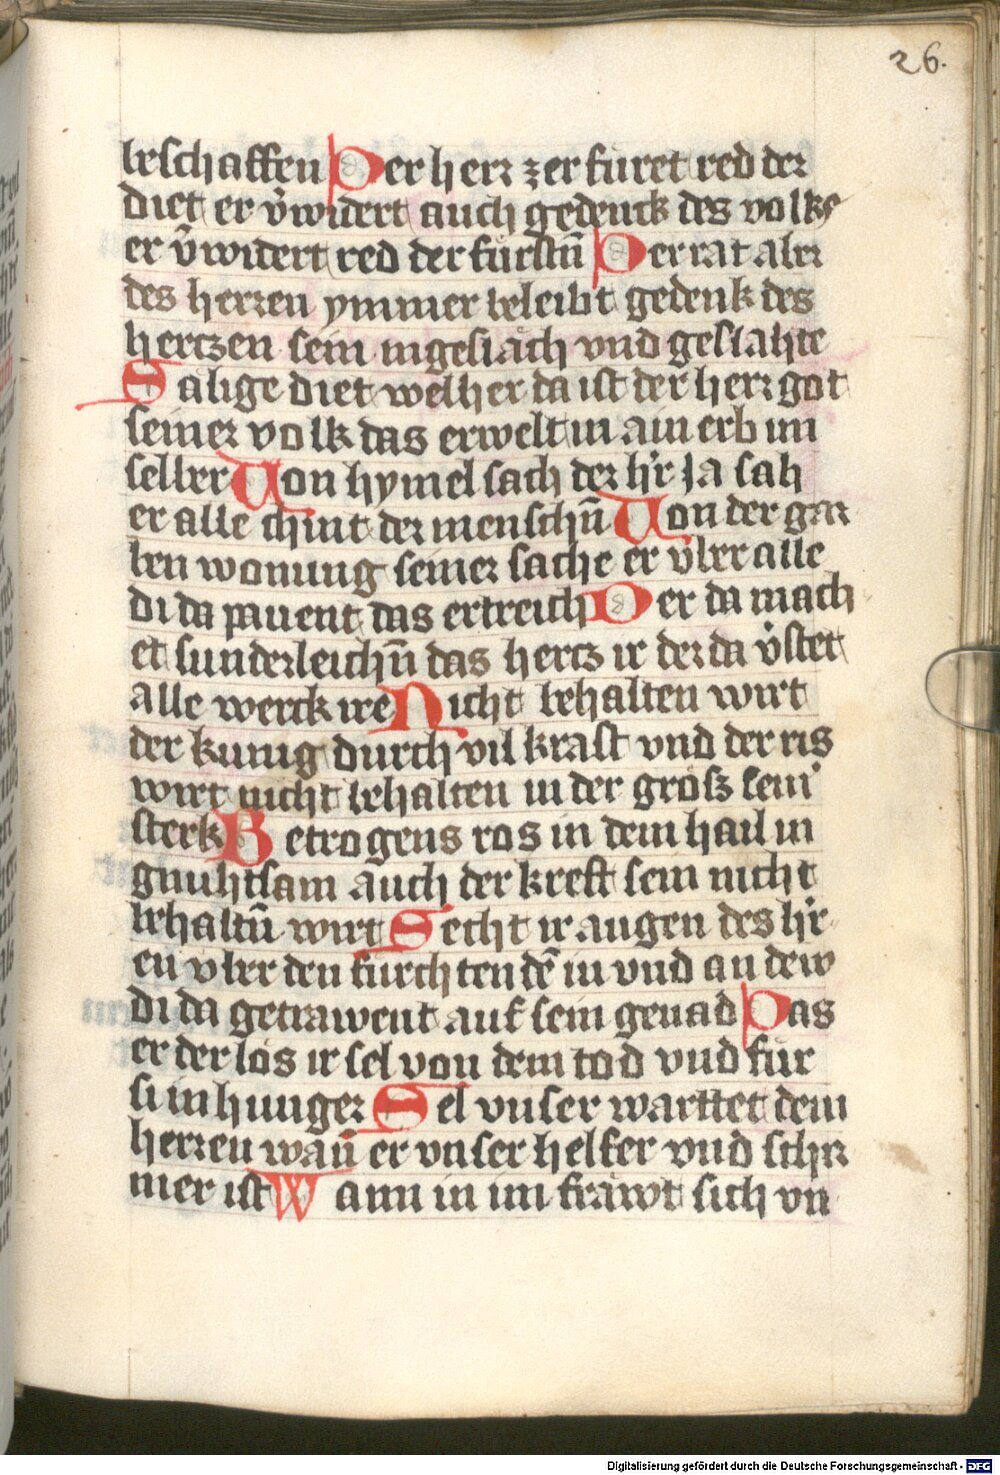 26.
beschaffen Der herr zer furet red der
diet er v̄widert auch gedenck des volks
er v̄widert red der fursten̄ Der rat aber
des herren ymmer beleibt gedenk des
hertzen sein in geslach vnd geslahte
Salige diet welher da ist der herr got
seiner volk das erwelt in ain erb im
selber Von hymel sach der h'r Ja sah
er alle chint der menschn̄ Von der gar
ben wonung seiner sache er vber alle
di da pauent das ertreich Der da mach
et sunderleichn̄ das hertz ir der da v̄stet
alle werck ire Nicht behalten wirt
der kunig durch vil kraft vnd der ris
wirt nicht behalten in der grosz sein'
sterk Betrogens ros in dem hail in
gnuhtsam auch der kreft sein nicht
behaltn̄ wirt Secht ir augen des h'r
en vber den furchtendē in vnd an dew
di da getrawent auf sein genad Das
er der los ir sel von dem tod vnd fur
si in hunger Sel vnser warttet dem
herren wan̄ er vnser helfer vnd schir
mer ist Wann in im fräwt sich vn
Digitalisierung gefördert durch die Deutsche Forschungsgemeinschaft - DFG